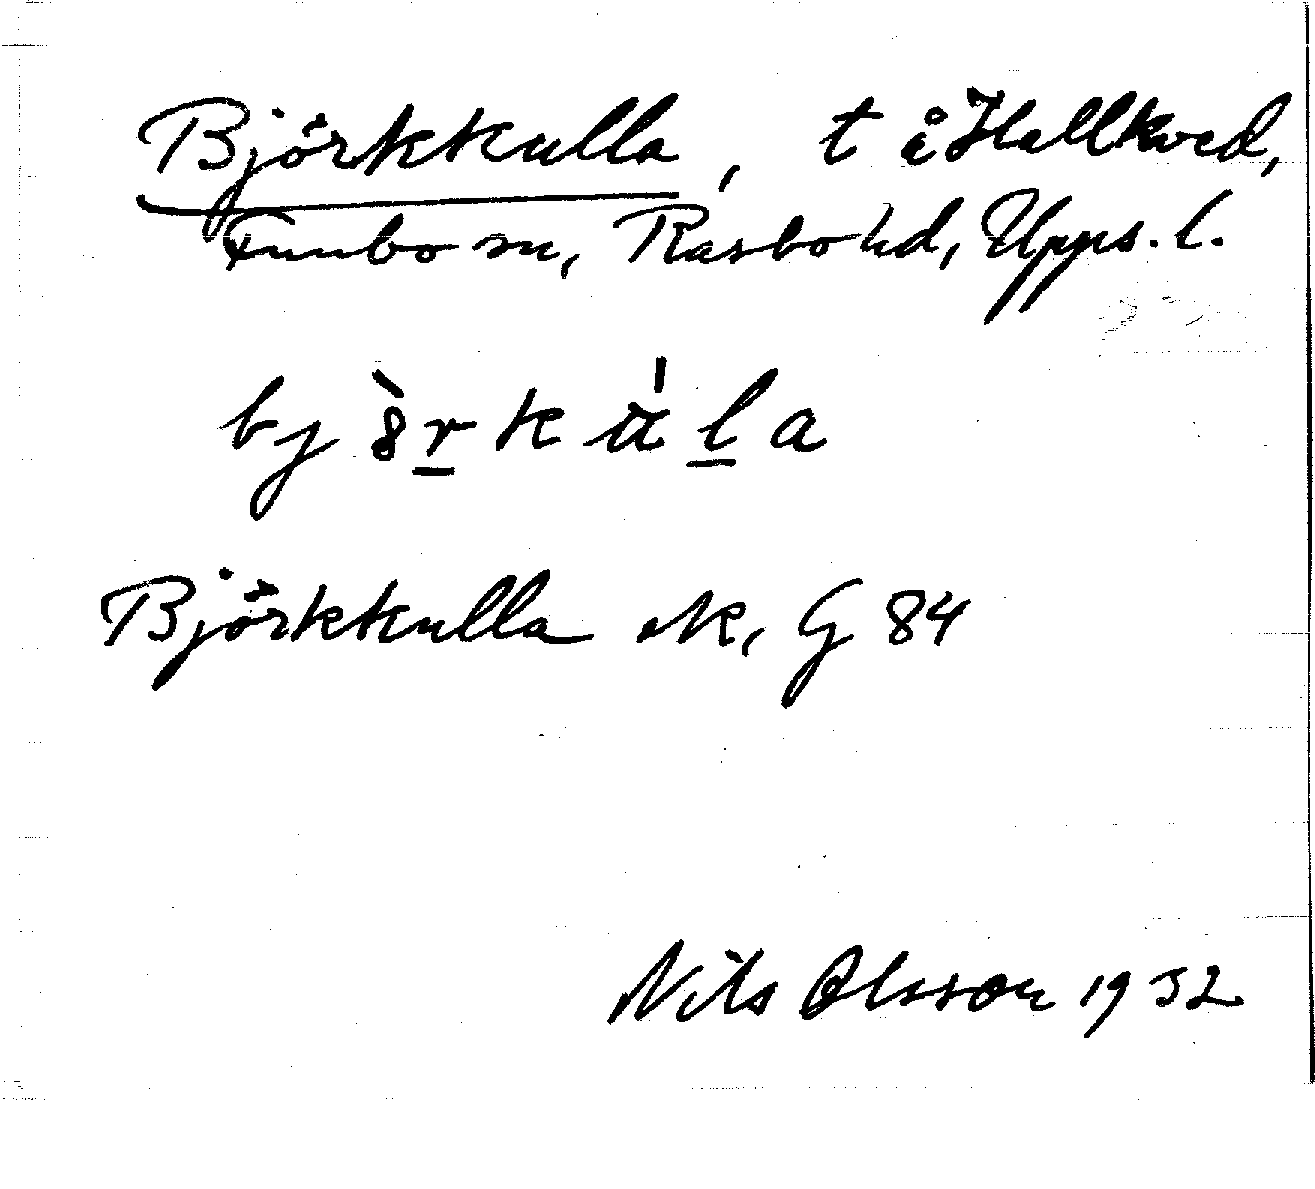 Björkkulla, t å Hallkved,
Funbo sn, Rasbo hd, Upps. l.
Björkkulla ek, G 84
Nils Olsson 1932